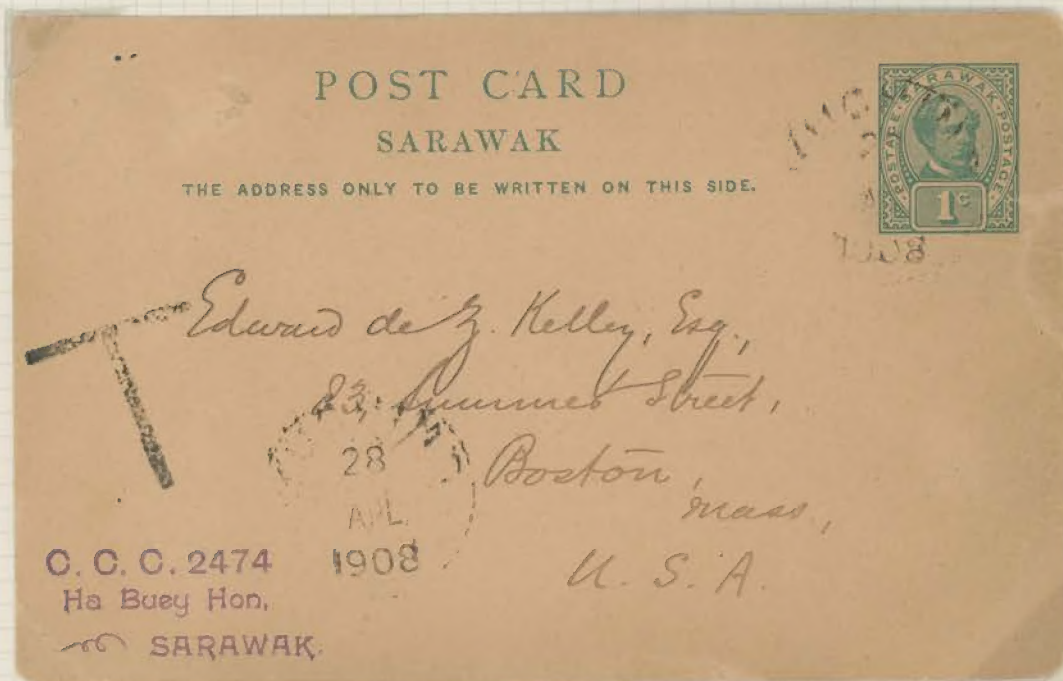 POST CARD
SARAWAK
THE ADDRESS ONLY TO BE WRITTEN ON THIS SIDE.
POSTAGE · SARAWAK · POSTAGE
1c
1908
Edward de Z. Kelley, Esq.,
83, Summer Street,
Boston,
Mass,
U. S. A.
T
28
APL
1908
C. C. C. 2474
Ha Buey Hon,
SARAWAK.